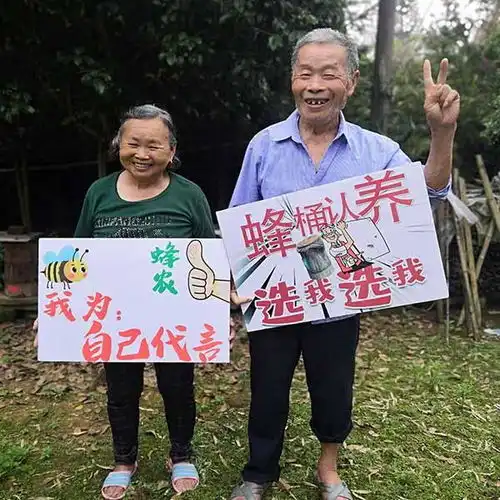 蜂农
我为:
自己代言
蜂桶认养
选我选我